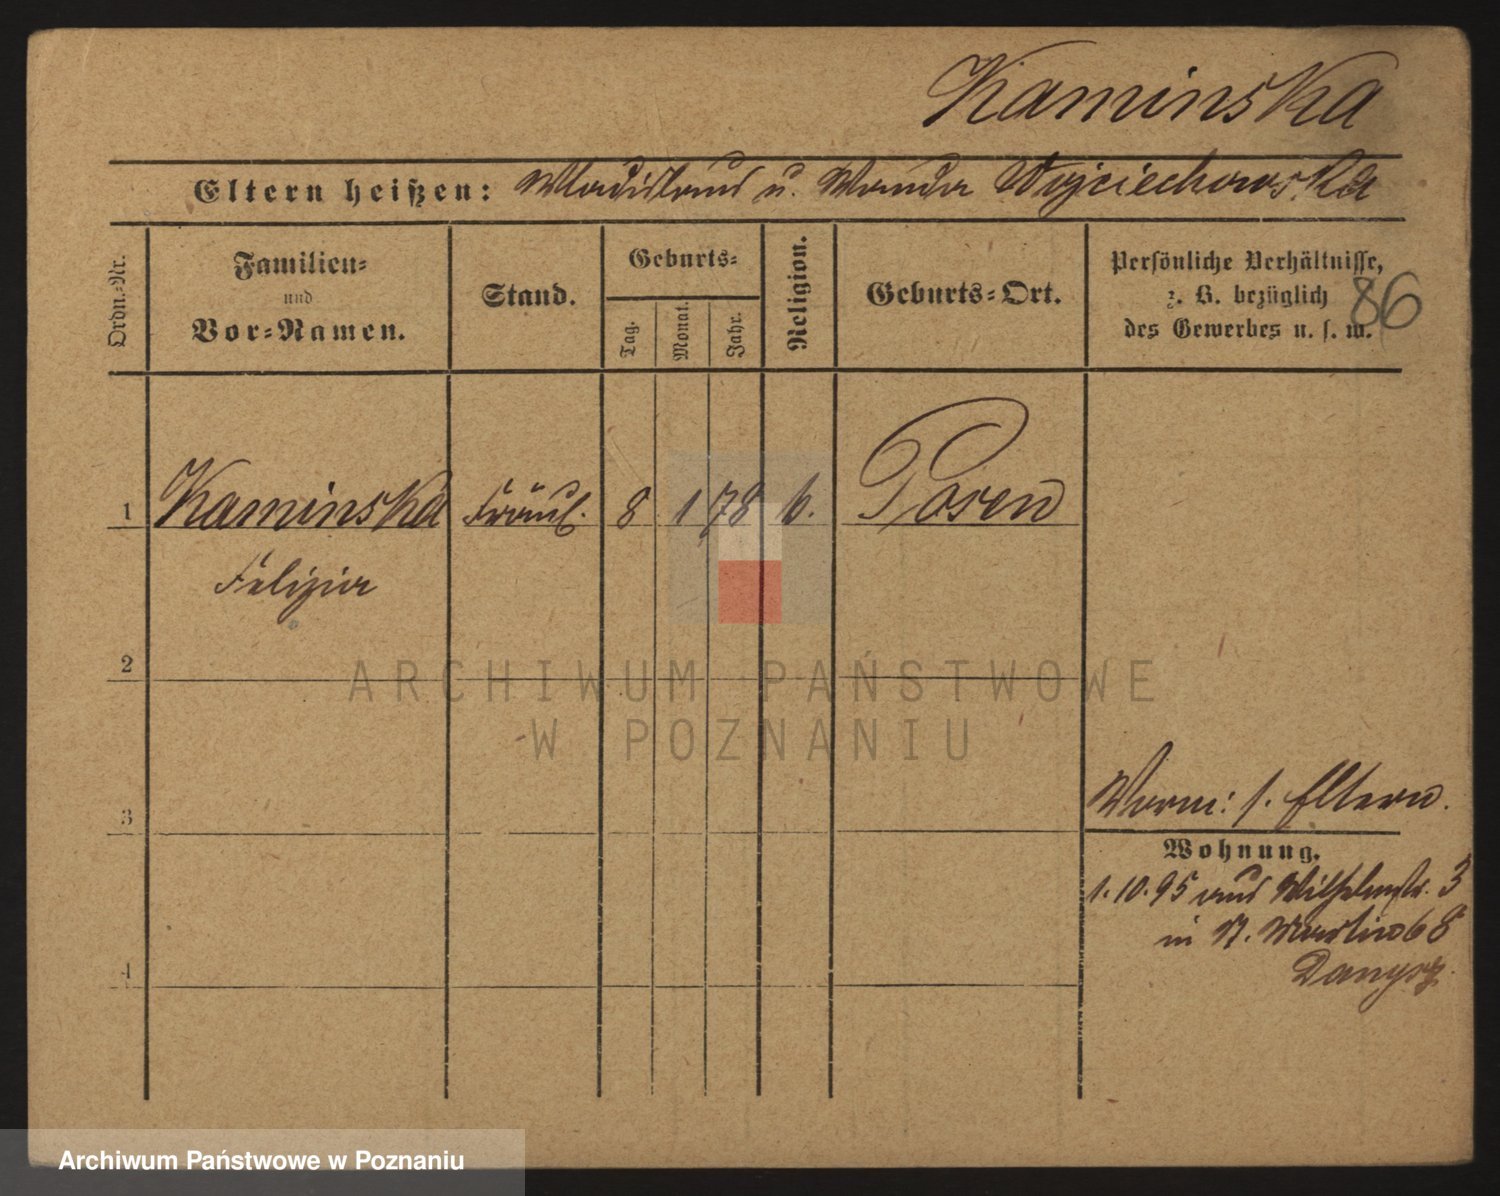 Kaminska
Eltern heißen: Wladislaus u. Wanda Wojciechowska
Ordn.-Nr.
Familien-
und
Vor-Namen.
Stand.
Geburts-
Tag.
Monat.
Jahr.
Religion.
Geburts-Ort.
Persönliche Verhältnisse,
z. B. bezüglich
des Gewerbes u. s. w.
86
1 Kaminska Fräul. 8 1 78 k. Posen
Felizia
2
ARCHIWUM PAŃSTWOWE
W POZNANIU
3
s. Eltern.
Wohnung.
1.10.95 aus Wilhelmstr. 3
in St. Martin 68
4
Archiwum Państwowe w Poznaniu